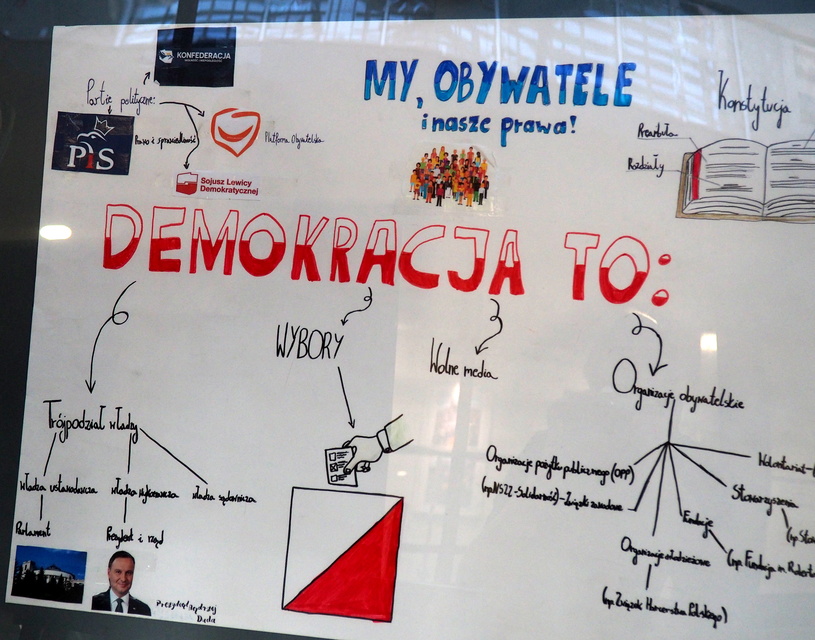 KONFEDERACJA
Partie polityczne:
PiS
Prawo i sprawiedliwość
Platforma Obywatelska
Sojusz Lewicy
Demokratycznej
MY, OBYWATELE
i nasze prawa!
Konstytucja
Preambuła
Rozdziały
DEMOKRACJA TO:
WYBORY
Wolne media
Organizacje obywatelskie
Trójpodział władzy
władza ustawodawcza
władza wykonawcza
władza sądownicza
Parlament
Prezydent i rząd
Prezydent Andrzej
Duda
Organizacje pożytku publicznego (OPP)
(np. NSZZ -Solidarność)- Związki zawodowe
Wolontariat
Stowarzyszenia
Fundacje
(np. Fundacja im. Roberta
Organizacje młodzieżowe
(np. Związek Harcerstwa Polskiego)